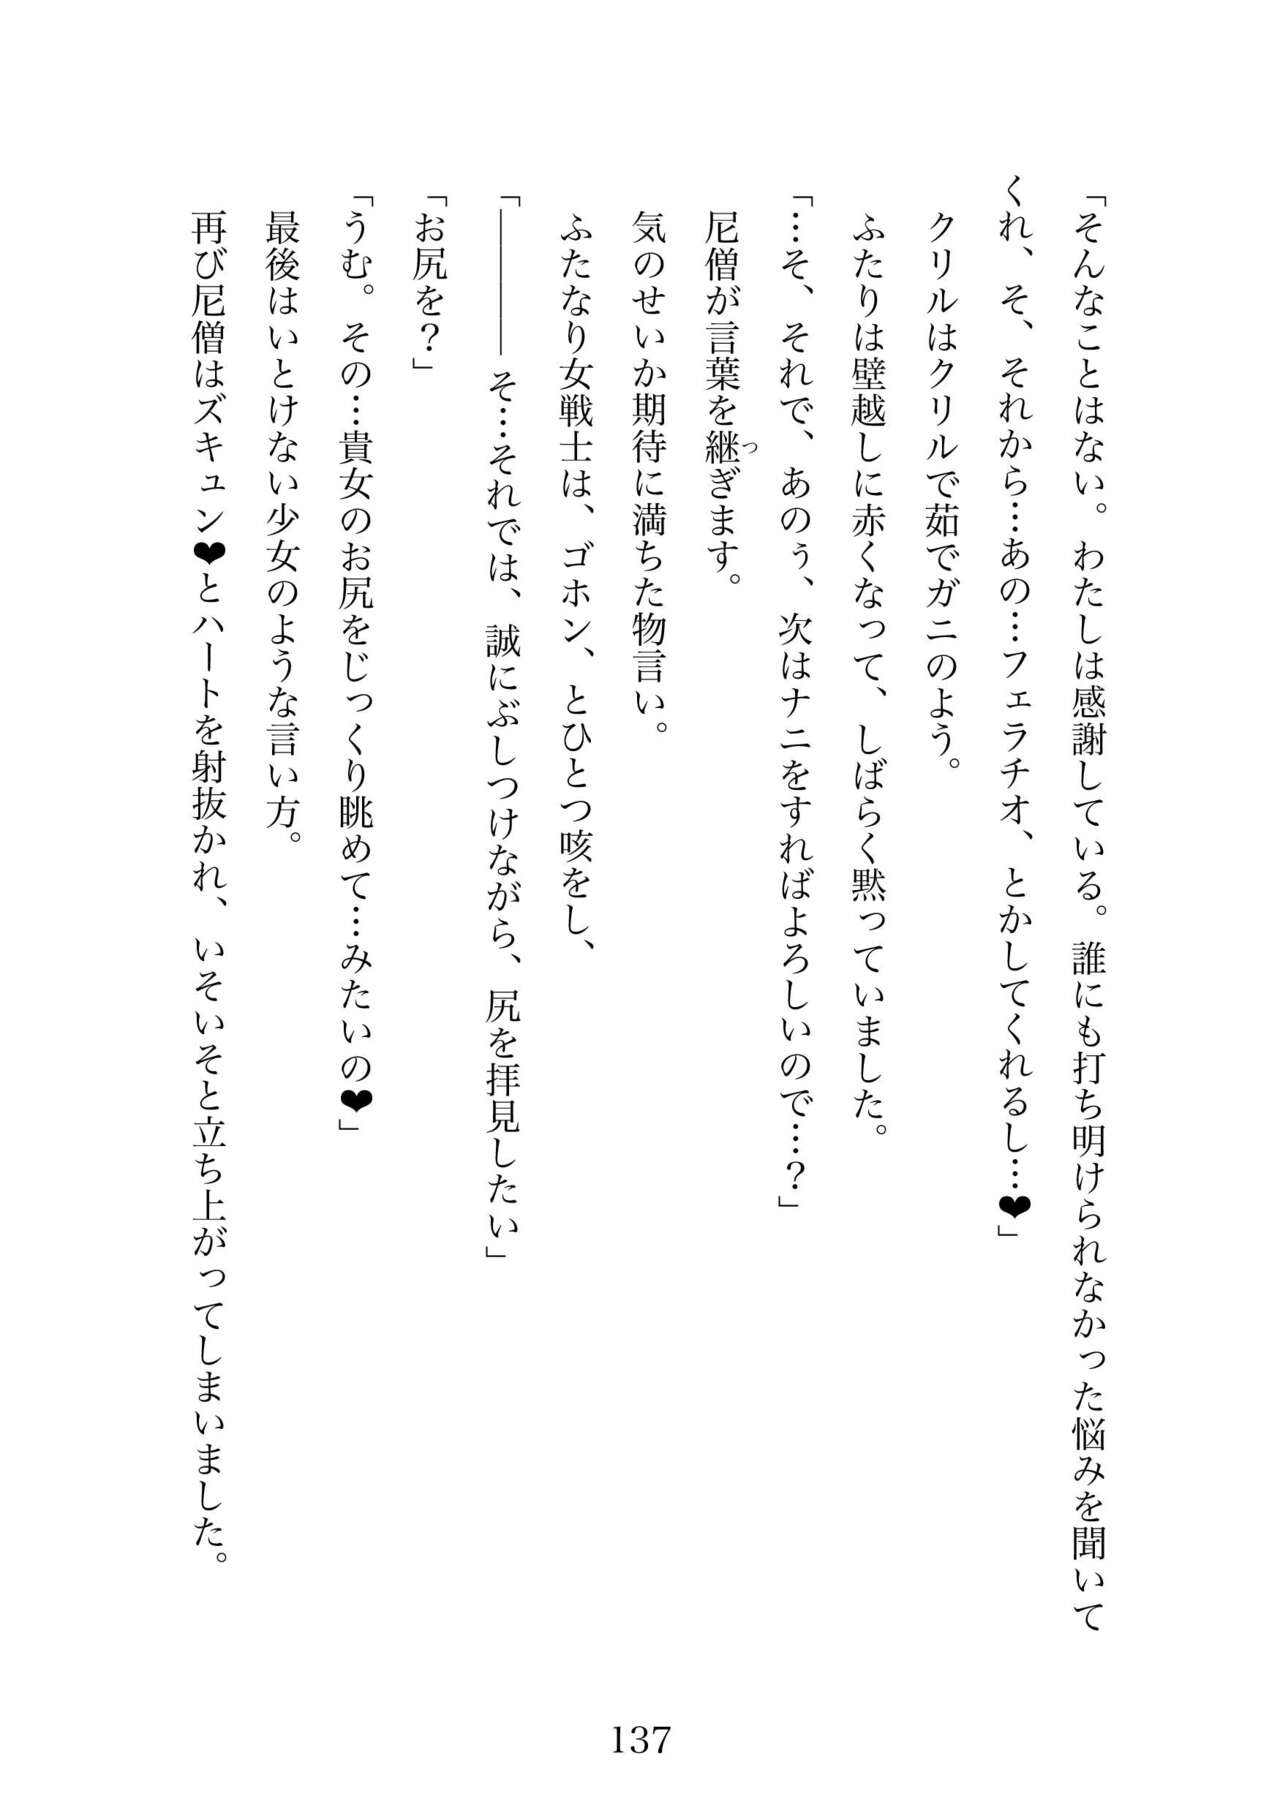 「そんなことはない。わたしは感謝している。誰にも打ち明けられなかった悩みを聞いて
くれ、そ、それから…あの…フェラチオ、とかしてくれるし…❤」
クリルはクリルで茹でガニのよう。
ふたりは壁越しに赤くなって、しばらく黙っていました。
「…そ、それで、あのぅ、次はナニをすればよろしいので…？」
尼僧が言葉を継ぎます。
つ
気のせいか期待に満ちた物言い。
ふたなり女戦士は、ゴホン、とひとつ咳をし、
「――――そ…それでは、誠にぶしつけながら、尻を拝見したい」
「お尻を？」
「うむ。その…貴女のお尻をじっくり眺めて…みたいの❤」
最後はいとけない少女のような言い方。
再び尼僧はズキュン❤とハートを射抜かれ、いそいそと立ち上がってしまいました。
137